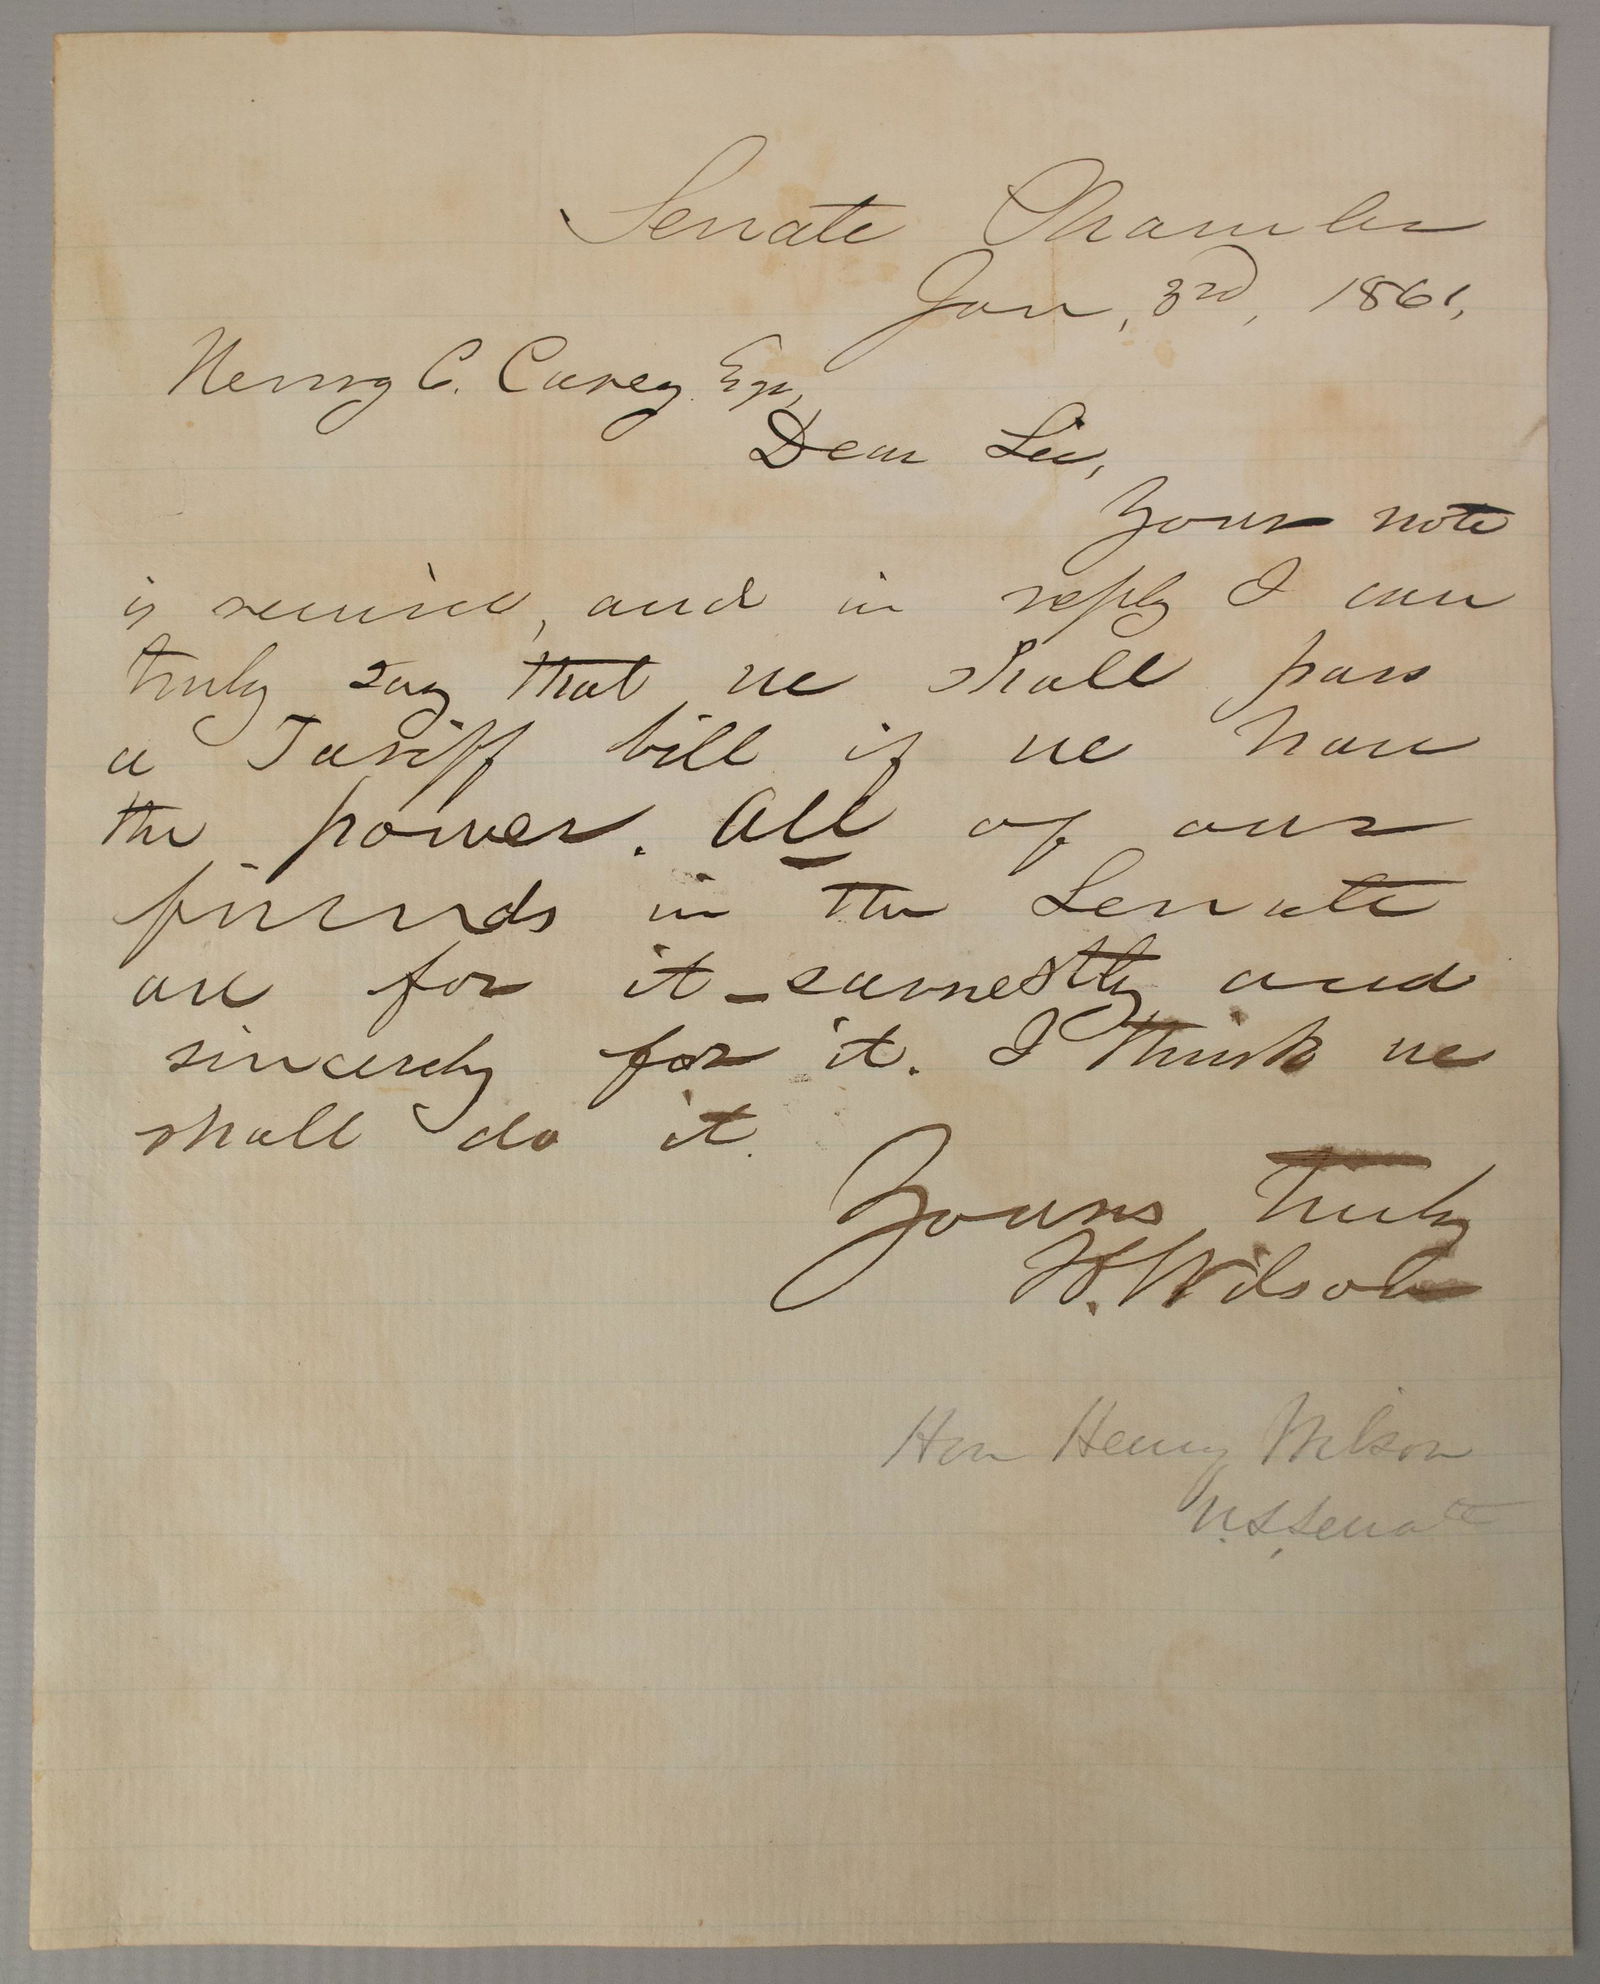 Senate Chamber
Jan, 3rd, 1861,
Henry C. Carey Esq,
Dear Sir,
Your note
is received, and in reply I can
truly say that we shall pass
a Tariff bill if we have
the power. All of our
friends in the Senate
are for it - earnestly and
sincerely for it. I think we
shall do it.
Yours truly
H. Wilson
Hon Henry Wilson
U.S. Senate